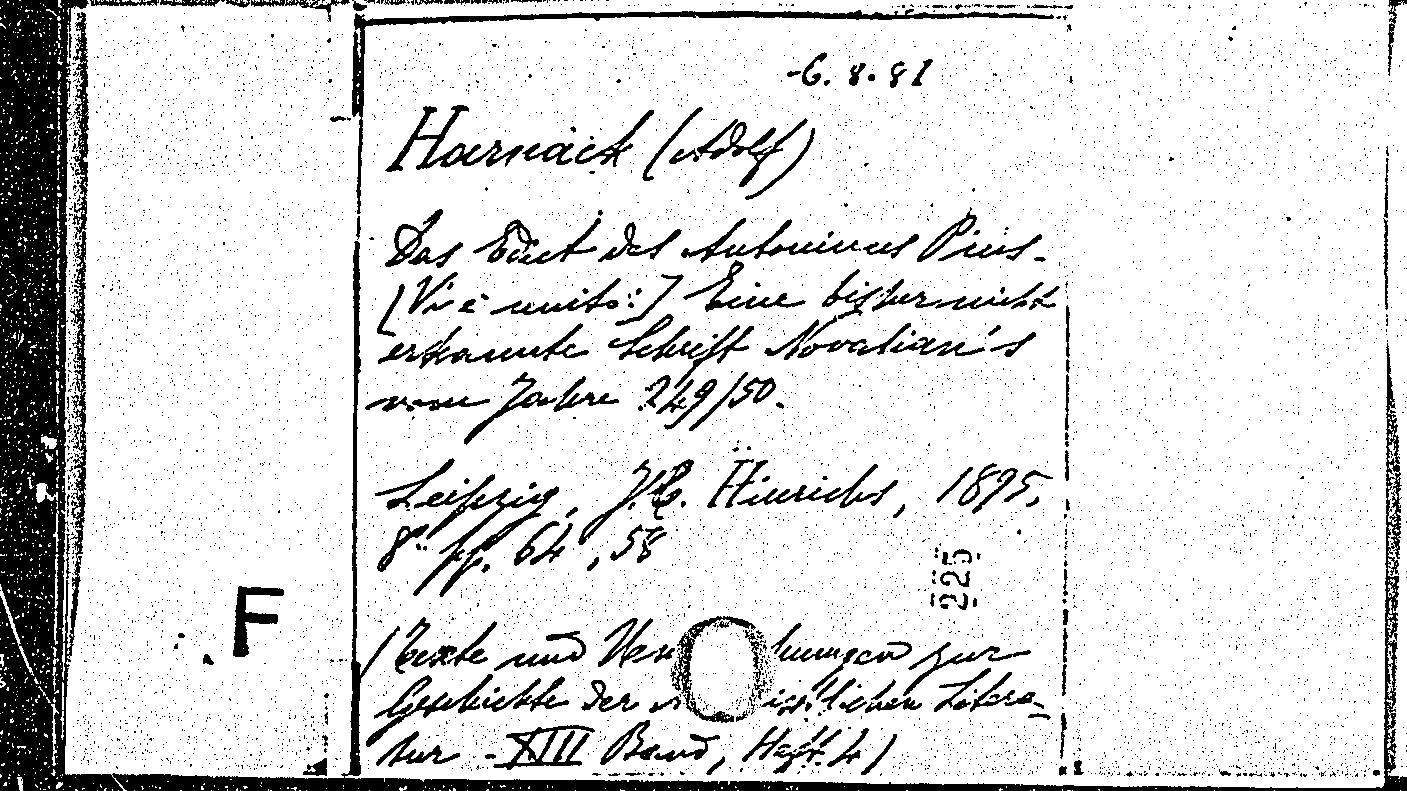 -6. 8. 81
Harnack (Adolf)
Das Edict des Antoninus Pius.
[Vi è unito:] Eine bisher nicht
erkannte Schrift Novatian's
vom Jahre 249/50.
Leipzig, J. C. Hinrichs, 1895,
8° pp. 64, 58
225
F
(Texte und hungen zur
Geschichte der istlichen Litera-
tur - XIII Band, Heft. 4)